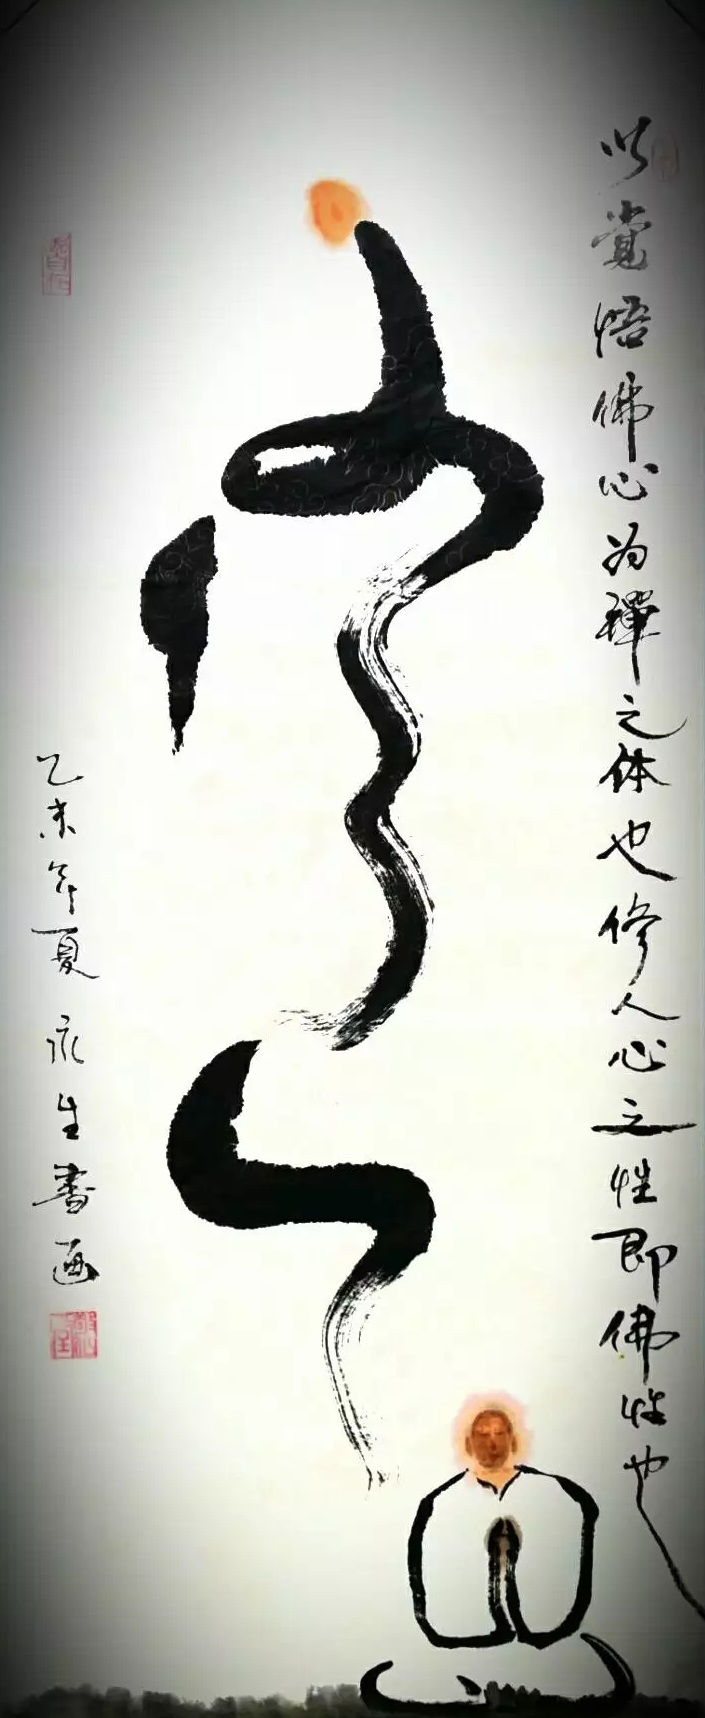 以覺悟佛心为禪之体也修人心之性即佛性也
乙未年夏永生書画